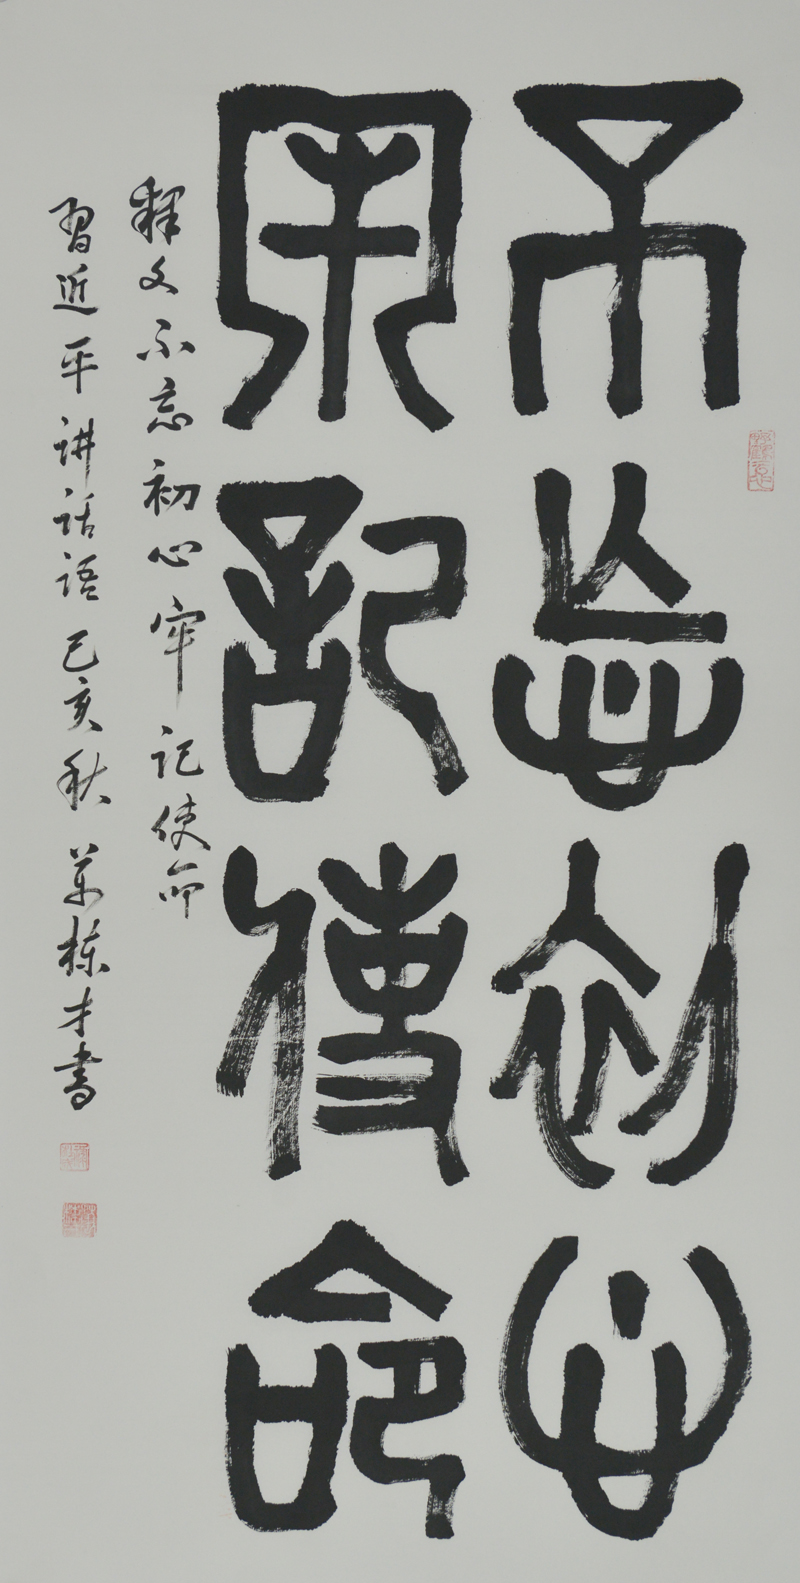 不忘初心
牢记使命
释文不忘初心牢记使命
習近平讲话语己亥秋万栋才書